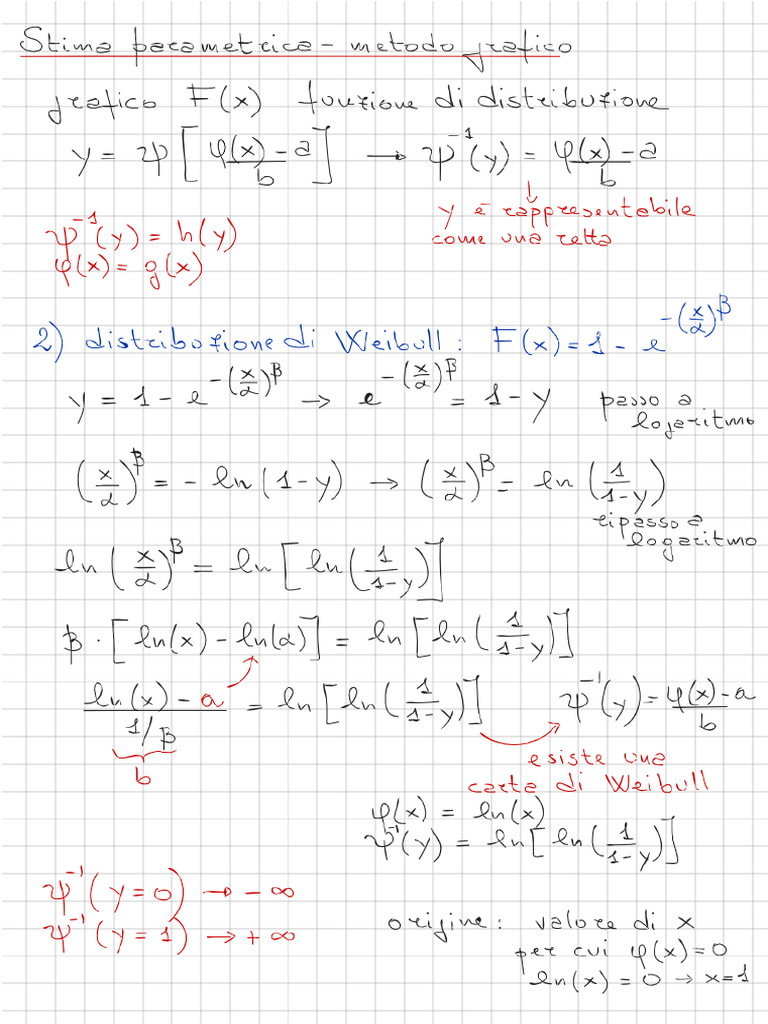 Stima parametrica - metodo grafico
grafico F(x) funzione di distribuzione
y = ψ [ (φ(x) - a)/b ] → ψ⁻¹(y) = (φ(x) - a)/b
↓
y è rappresentabile
come una retta
ψ⁻¹(y) = h(y)
φ(x) = g(x)
2) distribuzione di Weibull: F(x) = 1 - e^(-(x/α)^β)
y = 1 - e^(-(x/α)^β) → e^(-(x/α)^β) = 1 - y passo a
logaritmo
(x/α)^β = - ln(1-y) → (x/α)^β = ln(1/(1-y))
ripasso a
logaritmo
ln(x/α)^β = ln[ln(1/(1-y))]
β · [ln(x) - ln(α)] = ln[ln(1/(1-y))]
(ln(x) - a)/(1/β) = ln[ln(1/(1-y))] ψ⁻¹(y) = (φ(x) - a)/b
b
esiste una
carta di Weibull
φ(x) = ln(x)
ψ⁻¹(y) = ln[ln(1/(1-y))]
ψ⁻¹(y=0) → - ∞
ψ⁻¹(y=1) → + ∞
origine: valore di x
per cui φ(x)=0
ln(x) = 0 → x=1